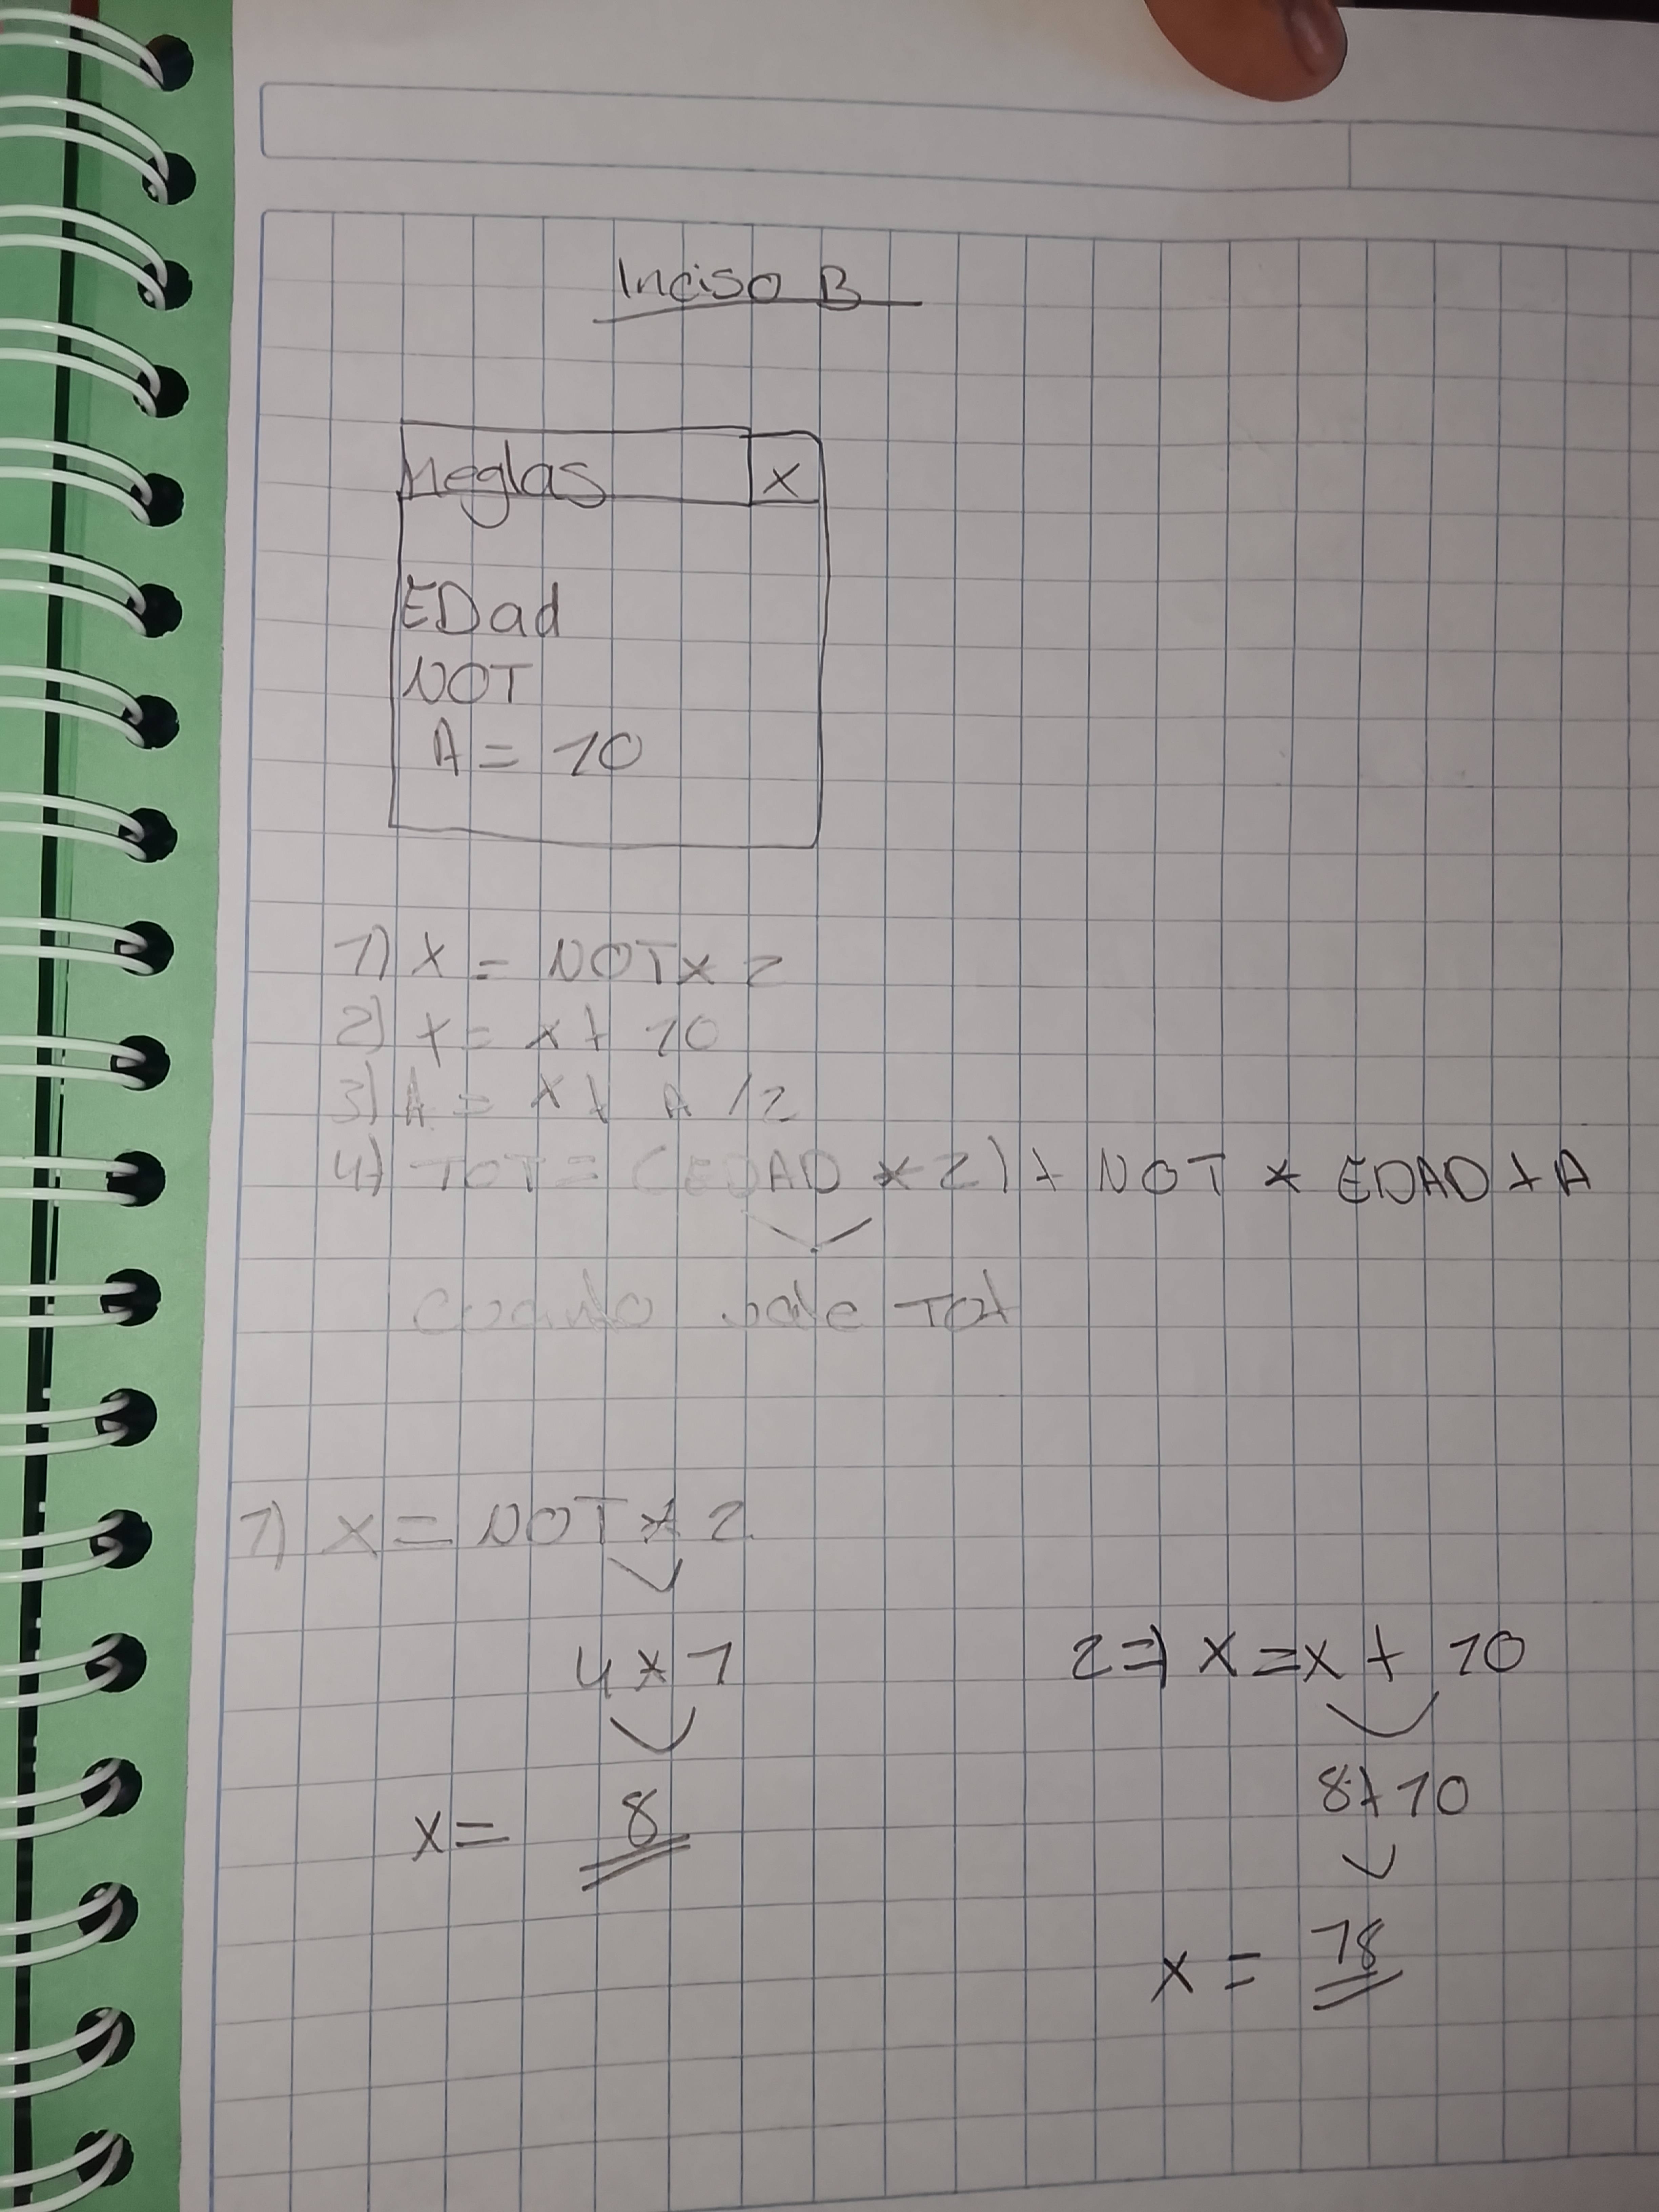 Inciso B
Reglas X
EDad
NOT
A = 10
1) X = NOT x 2
2) x = x + 10
3) A = X + A / 2
4) TOT = (EDAD * 2) + NOT * EDAD + A
Cuanto vale Tot
1) X = NOT * 2
4 * 1
x = 8
2=) X = x + 10
8+10
x = 18